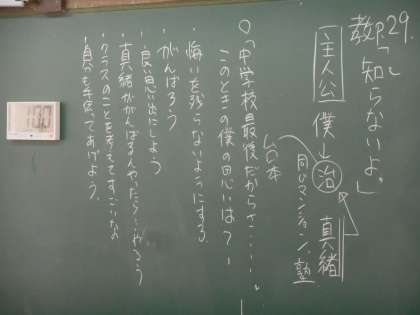 29.
教P「知らないよ。」
主人公 僕 治 真緒
同じマンション、塾
ムロ本
○「中学校最後だからさ……。」
このときの僕の思いは？
・悔いを残らないようにする
・がんばろう
・良い思い出にしよう
・真緒ががんばるんやったら…やろう
・クラスのことを考えてすごいな
・真緒を手伝ってあげよう。